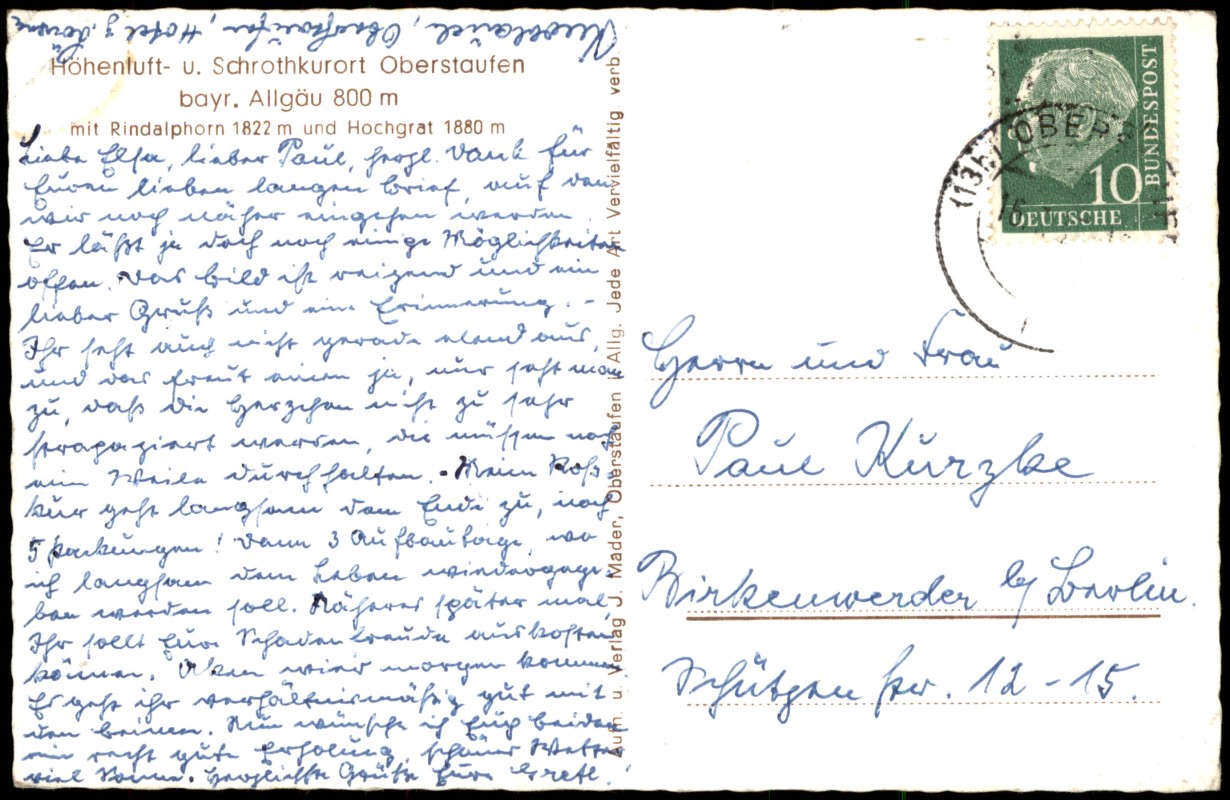 Oberstaufen, Hotel z. Sonne
Höhenluft- u. Schrothkurort Oberstaufen
bayr. Allgäu 800 m
mit Rindalphorn 1822 m und Hochgrat 1880 m
Liebe Elsa, lieber Paul, herzl. Dank für
Euren lieben langen Brief, auf den
wir noch näher eingehen werden.
Er läßt ja doch noch einige Möglichkeiten
offen. Das Bild ist reizend und ein
lieber Gruß und eine Erinnerung. -
Ihr seht auch nicht gerade elend aus,
und das freut einen ja, nur seht man
zu, daß die Herzchen nicht zu sehr
strapaziert werden, die müssen noch
eine Weile durchhalten. - Meine Roß-
kur geht langsam dem Ende zu, noch
5 Packungen! Dann 3 Aufbautage, wo
ich langsam dem Leben wiedergege-
ben werden soll. Näheres später mal
Ihr sollt Eure Schadenfreude auskosten
können. wird morgen kommen
Es geht ihr verhältnismäßig gut mit
den Beinen. Nun wünsche ich Euch beiden
eine recht gute Erholung, schönes Wetter
viel Sonne. Herzlichste Grüße Eure Gretl.
Aufn. u. Verlag J. Mader, Oberstaufen i. Allg. Jede Art Vervielfältig. verb.
DEUTSCHE BUNDESPOST
10
(13b) OBERS
Herrn und Frau
Paul Kurzke
Birkenwerder b/Berlin.
Schützenstr. 12-15.